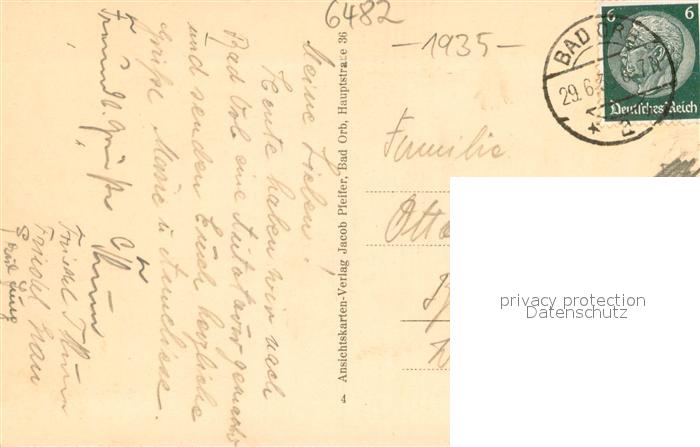 6482
-1935-
BAD ORB
29.6.3
6 6
Deutsches Reich
Meine Lieben!
Heute haben wir nach
Bad Orb eine Autotour gemacht
und senden Euch herzliche
Grüße Marie u. Anneliese.
Freundl. Grüße
Friedel Thum
Friedel
4 Ansichtskarten-Verlag Jacob Pfeifer, Bad Orb, Hauptstraße 36
Familie
Otto
privacy protection
Datenschutz